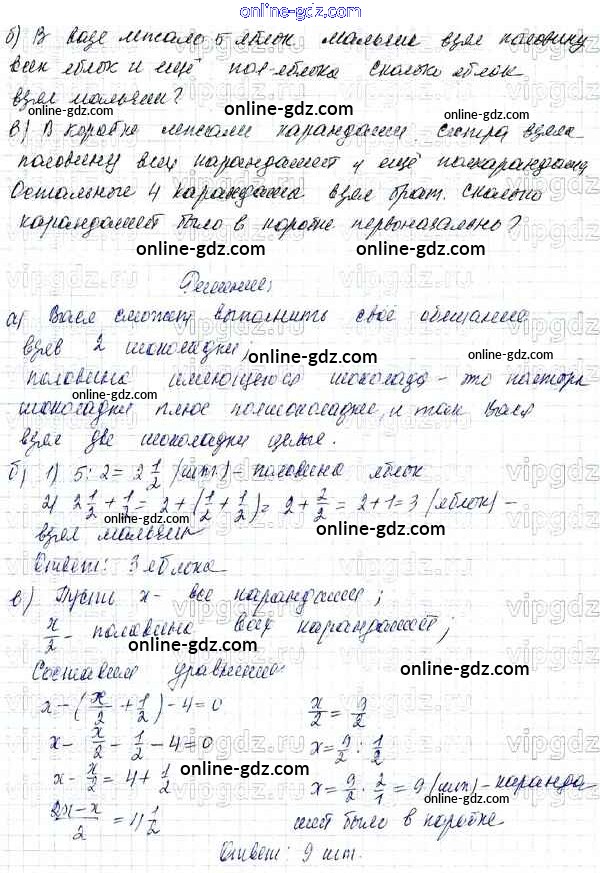 online-gdz.com
б) В вазе лежало 5 яблок мальчик взял половину
всех яблок и ещё пол-яблока сколько яблок
взял мальчик?
online-gdz.com
в) В коробке лежали карандаши. Сестра взяла
половину всех карандашей и ещё полкарандаша
Остальные 4 карандаша взял брат. Сколько
карандашей было в коробке первоначально?
online-gdz.com
Решение:
а) Вася сможет выполнить своё обещание
взяв 2 шоколадки;
online-gdz.com
половина имеющегося шоколада - это полторы
шоколадки плюс полшоколадки, и так Вася
взял две шоколадки целые.
б) 1) 5:2=2 1/2 (шт.) - половина яблок
2) 2 1/2 + 1/2 = 2 + (1/2 + 1/2) = 2 + 2/2 = 2+1=3 (яблок) -
взял мальчик
Ответ: 3 яблока
в) Пусть x - все карандаши;
x/2 - половина всех карандашей;
Составим уравнение:
x - (x/2 + 1/2) - 4 = 0
x - x/2 - 1/2 - 4 = 0
x - x/2 = 4 + 1/2
2x-x/2 = 4 1/2
x/2 = 9/2
x = 9/2 : 1/2
x = 9/2 · 2/1 = 9 (шт) - каранда
шей было в коробке
Ответ: 9 шт.